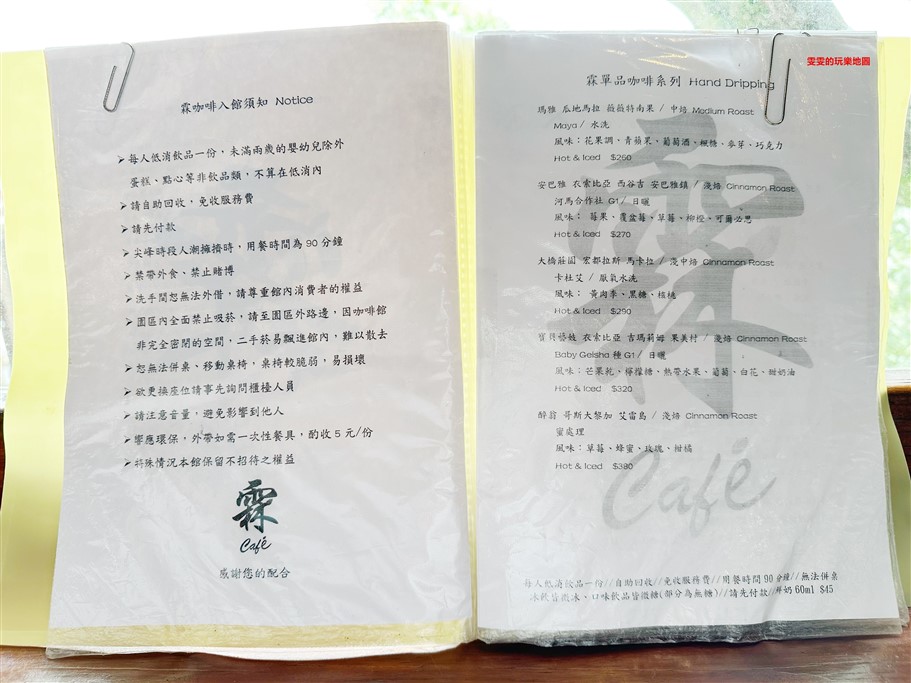 霖咖啡入館須知 Notice
➤每人低消飲品一份，未滿兩歲的嬰幼兒除外
蛋糕、點心等非飲品類，不算在低消內
➤請自助回收，免收服務費
➤請先付款
➤尖峰時段人潮擁擠時，用餐時間為 90 分鐘
➤禁帶外食、禁止賭博
➤洗手間恕無法外借，請尊重館內消費者的權益
➤園區內全面禁止吸菸，請至園區外路邊，因咖啡館
非完全密閉的空間，二手菸易飄進館內，難以散去
➤恕無法併桌、移動桌椅，桌椅較脆弱，易損壞
➤欲更換座位請事先詢問櫃檯人員
➤請注意音量，避免影響到他人
➤響應環保，外帶如需一次性餐具，酌收 5 元/份
➤特殊情況本館保留不招待之權益
霖
Café
感謝您的配合
雯雯的玩樂地圖
霖單品咖啡系列 Hand Dripping
瑪雅 瓜地馬拉 薇薇特南果 / 中焙 Medium Roast
Maya / 水洗
風味：花果調、青蘋果、葡萄酒、楓糖、麥芽、巧克力
Hot & Iced $250
安巴雅 衣索比亞 西谷吉 安巴雅鎮 / 淺焙 Cinnamon Roast
河馬合作社 G1 / 日曬
風味： 莓果、覆盆莓、草莓、柳橙、可爾必思
Hot & Iced $270
大橋莊園 宏都拉斯 馬卡拉 / 淺中焙 Cinnamon Roast
卡杜艾 / 厭氧水洗
風味： 黃肉李、黑糖、核桃
Hot & Iced $290
寶貝藝妓 衣索比亞 吉瑪莉姆 果美村 / 淺焙 Cinnamon Roast
Baby Geisha 種 G1 / 日曬
風味：芒果乾、檸檬糖、熱帶水果、葡萄、白花、甜奶油
Hot & Iced $320
醉翁 哥斯大黎加 艾雷島 / 淺焙 Cinnamon Roast
蜜處理
風味：草莓、蜂蜜、玫瑰、柑橘
Hot & Iced $380
霖
Café
每人低消飲品一份//自助回收//免收服務費//用餐時間 90 分鐘//無法併桌
冰飲皆微冰、口味飲品皆微糖(部分為無糖)//請先付款//鮮奶 60ml $45